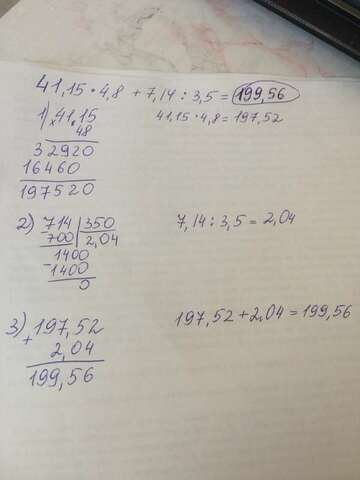 41,15 · 4,8 + 7,14 : 3,5 = 199,56
1) × 41,15 41,15 · 4,8 = 197,52
48
32920
16460
197520
2) 714 350 7,14 : 3,5 = 2,04
700 2,04
1400
- 1400
0
3) + 197,52 197,52 + 2,04 = 199,56
2,04
199,56